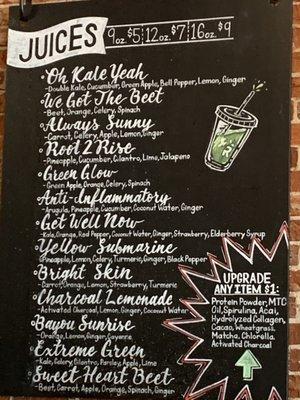 JUICES
9oz. $5 | 12oz. $7 | 16oz. $9
Oh Kale Yeah
-Double Kale, Cucumber, Green Apple, Bell Pepper, Lemon, Ginger
We Got The Beet
-Beet, Orange, Celery, Spinach
Always Sunny
-Carrot, Celery, Apple, Lemon, Ginger
Root 2 Rise
-Pineapple, Cucumber, Cilantro, Lime, Jalapeno
Green Glow
-Green Apple, Orange, Celery, Spinach
Anti-Inflammatory
-Arugula, Pineapple, Cucumber, Coconut Water, Ginger
Get Well Now
-Kale, Orange, Red Pepper, Coconut Water, Ginger, Strawberry, Elderberry Syrup
Yellow Submarine
-Pineapple, Lemon, Celery, Turmeric, Ginger, Black Pepper
Bright Skin
-Carrot, Orange, Lemon, Strawberry, Turmeric
Charcoal Lemonade
-Activated Charcoal, Lemon, Ginger, Coconut Water
Bayou Sunrise
-Orange, Lemon, Ginger, Cayenne
Extreme Green
-Kale, Celery, Cilantro, Parsley, Apple, Lime
Sweet Heart Beet
-Beet, Carrot, Apple, Orange, Spinach, Ginger
UPGRADE
ANY ITEM $1:
Protein Powder, MTC
Oil, Spirulina, Acai,
Hydrolyzed Collagen,
Cacao, Wheatgrass,
Matcha, Chlorella,
Activated Charcoal